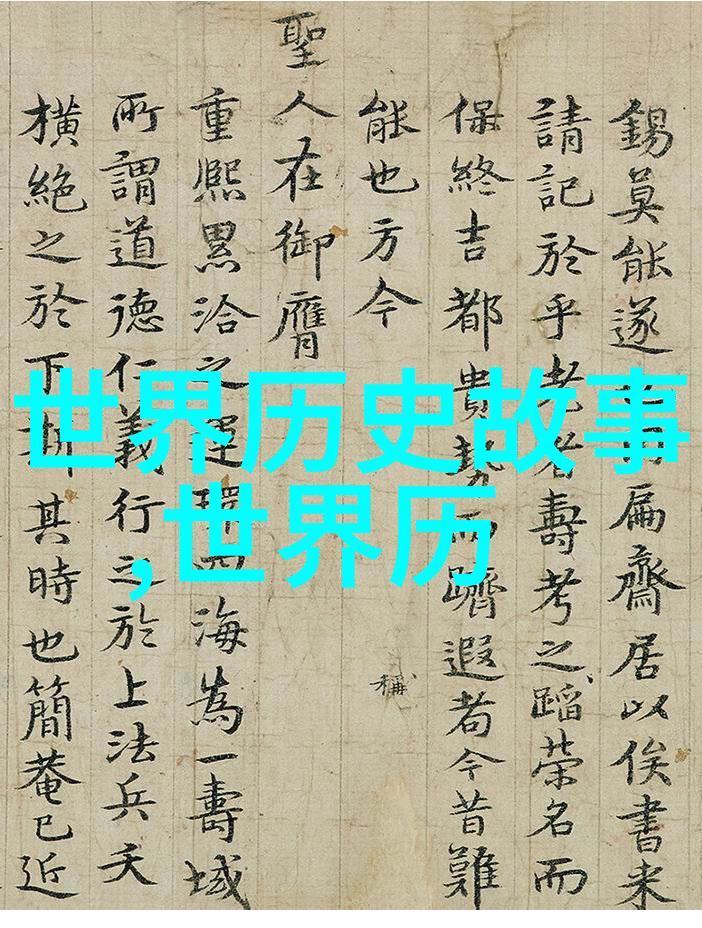 錫莫能遂扁齋居以俟書来
請記於乎老者壽考之蹈榮名而
保終吉都貴勢而躋遐耇今昔難
能也方今
稱
聖人在御膺
重熙累洽之運四海為一壽域
所謂道德仁義行之於上法兵夭
橫絕之於下斯其時也簡菴已近
世界历史故事
,世界历